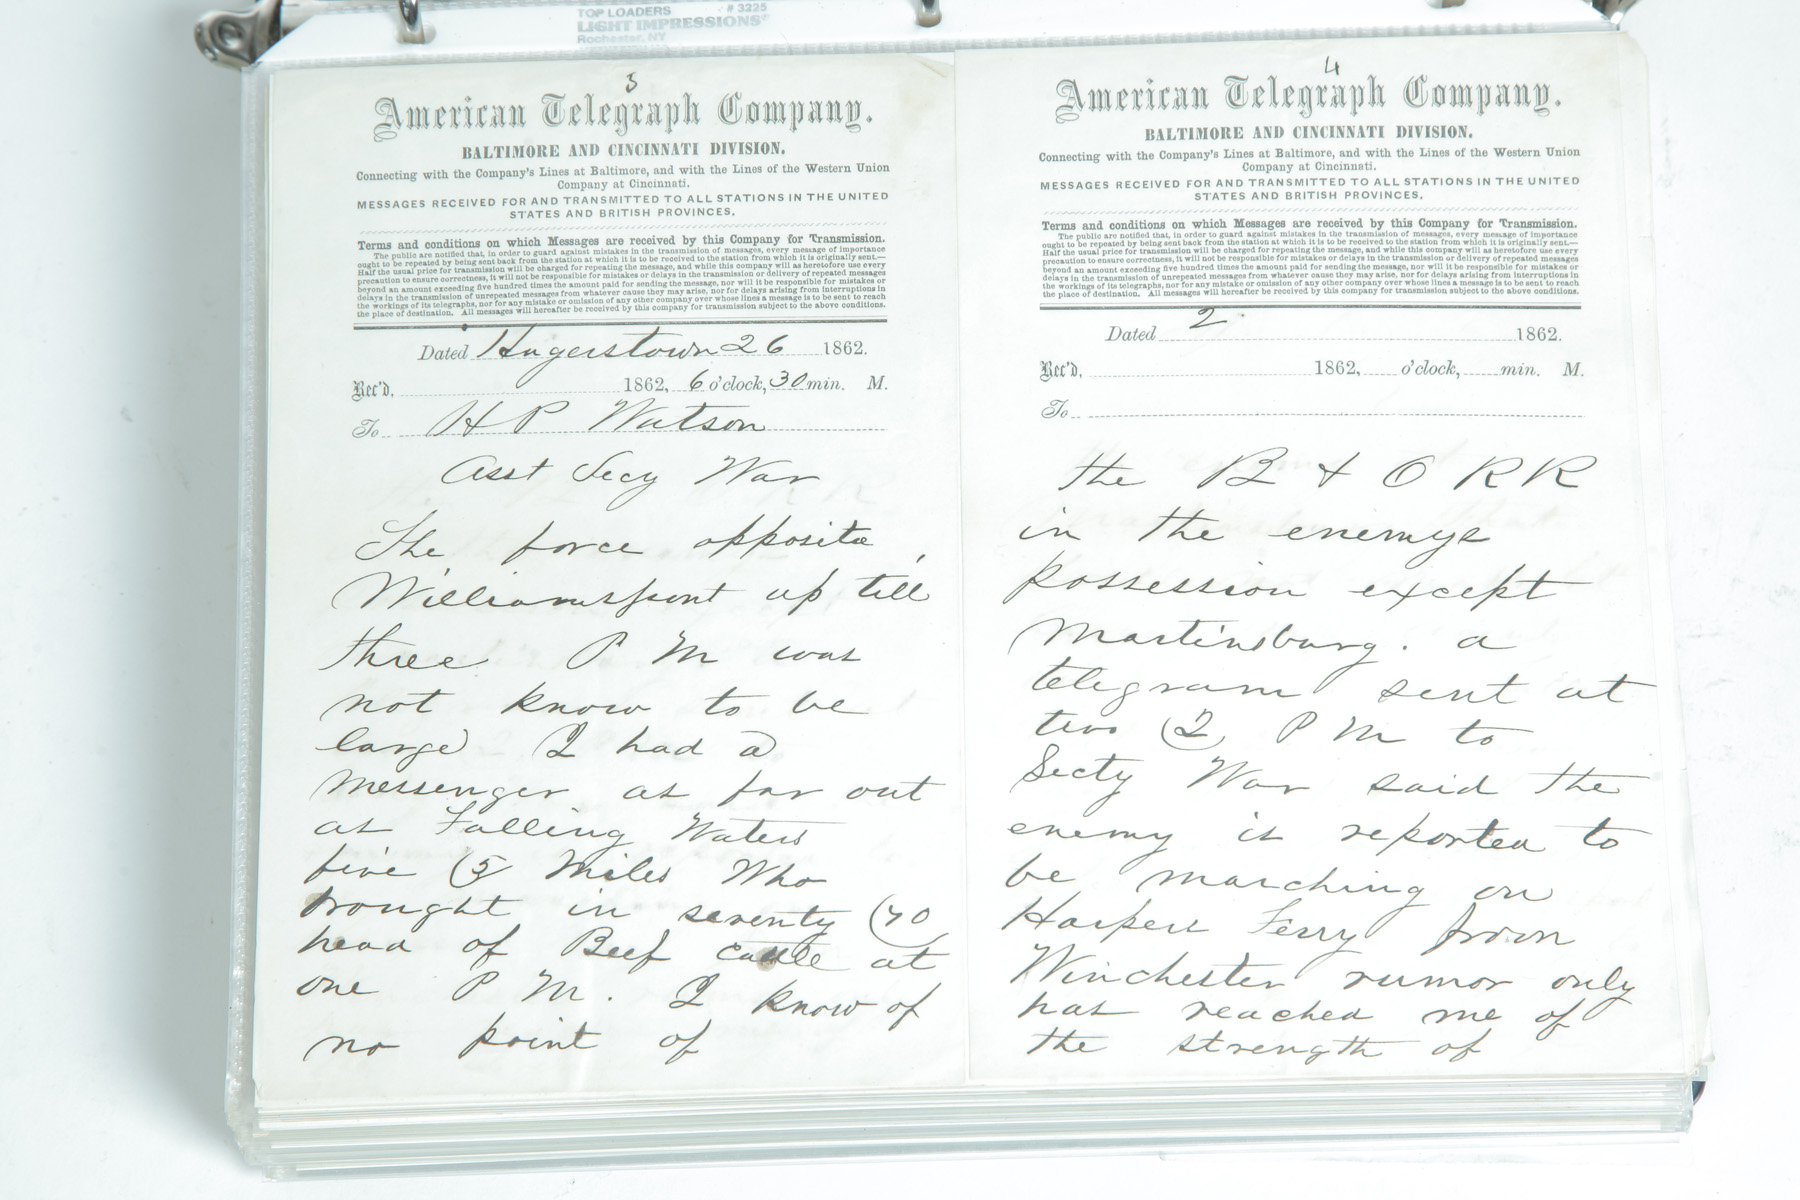 TOP LOADERS # 3225
LIGHT IMPRESSIONS®
Rochester, NY
3
American Telegraph Company.
BALTIMORE AND CINCINNATI DIVISION.
Connecting with the Company's Lines at Baltimore, and with the Lines of the Western Union
Company at Cincinnati.
MESSAGES RECEIVED FOR AND TRANSMITTED TO ALL STATIONS IN THE UNITED
STATES AND BRITISH PROVINCES.
Terms and conditions on which Messages are received by this Company for Transmission.
The public are notified that, in order to guard against mistakes in the transmission of messages, every message of importance
ought to be repeated by being sent back from the station at which it is to be received to the station from which it is originally sent.—
Half the usual price for transmission will be charged for repeating the message, and while this company will as heretofore use every
precaution to ensure correctness, it will not be responsible for mistakes or delays in the transmission or delivery of repeated messages
beyond an amount exceeding five hundred times the amount paid for sending the message, nor will it be responsible for mistakes or
delays in the transmission of unrepeated messages from whatever cause they may arise, nor for delays arising from interruptions in
the workings of its telegraphs, nor for any mistake or omission of any other company over whose lines a message is to be sent to reach
the place of destination. All messages will hereafter be received by this company for transmission subject to the above conditions.
Dated Hagerstown 26 1862.
Rec'd, 1862, 6 o'clock, 30 min. M.
To H P Watson
Asst Secy War
The force opposite
Williamsport up till
three P M was
not know to be
large I had a
messenger as far out
as Falling Waters
five (5 Miles Who
brought in seventy (70
head of Beef cattle at
one P M. I know of
no point of
4
American Telegraph Company.
BALTIMORE AND CINCINNATI DIVISION.
Connecting with the Company's Lines at Baltimore, and with the Lines of the Western Union
Company at Cincinnati.
MESSAGES RECEIVED FOR AND TRANSMITTED TO ALL STATIONS IN THE UNITED
STATES AND BRITISH PROVINCES.
Terms and conditions on which Messages are received by this Company for Transmission.
The public are notified that, in order to guard against mistakes in the transmission of messages, every message of importance
ought to be repeated by being sent back from the station at which it is to be received to the station from which it is originally sent.—
Half the usual price for transmission will be charged for repeating the message, and while this company will as heretofore use every
precaution to ensure correctness, it will not be responsible for mistakes or delays in the transmission or delivery of repeated messages
beyond an amount exceeding five hundred times the amount paid for sending the message, nor will it be responsible for mistakes or
delays in the transmission of unrepeated messages from whatever cause they may arise, nor for delays arising from interruptions in
the workings of its telegraphs, nor for any mistake or omission of any other company over whose lines a message is to be sent to reach
the place of destination. All messages will hereafter be received by this company for transmission subject to the above conditions.
Dated 2 1862.
Rec'd, 1862, o'clock, min. M.
To
the B & O R R
in the enemys
possession except
Martinsburg. a
telegram sent at
two (2) P M to
Secty War said the
enemy is reported to
be marching on
Harpers Ferry from
Winchester rumor only
has reached me of
the strength of